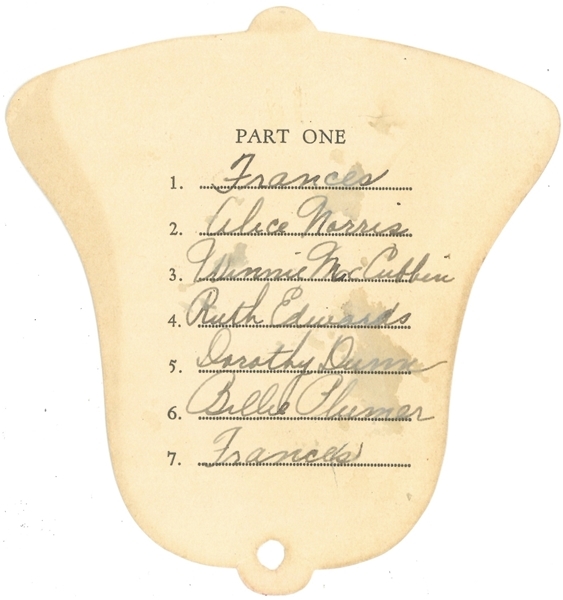 PART ONE
1. Frances
2. Alice Norris
3. Winnie MacCubbin
4. Ruth Edwards
5. Dorothy Dunn
6. Billie Plumer
7. Frances